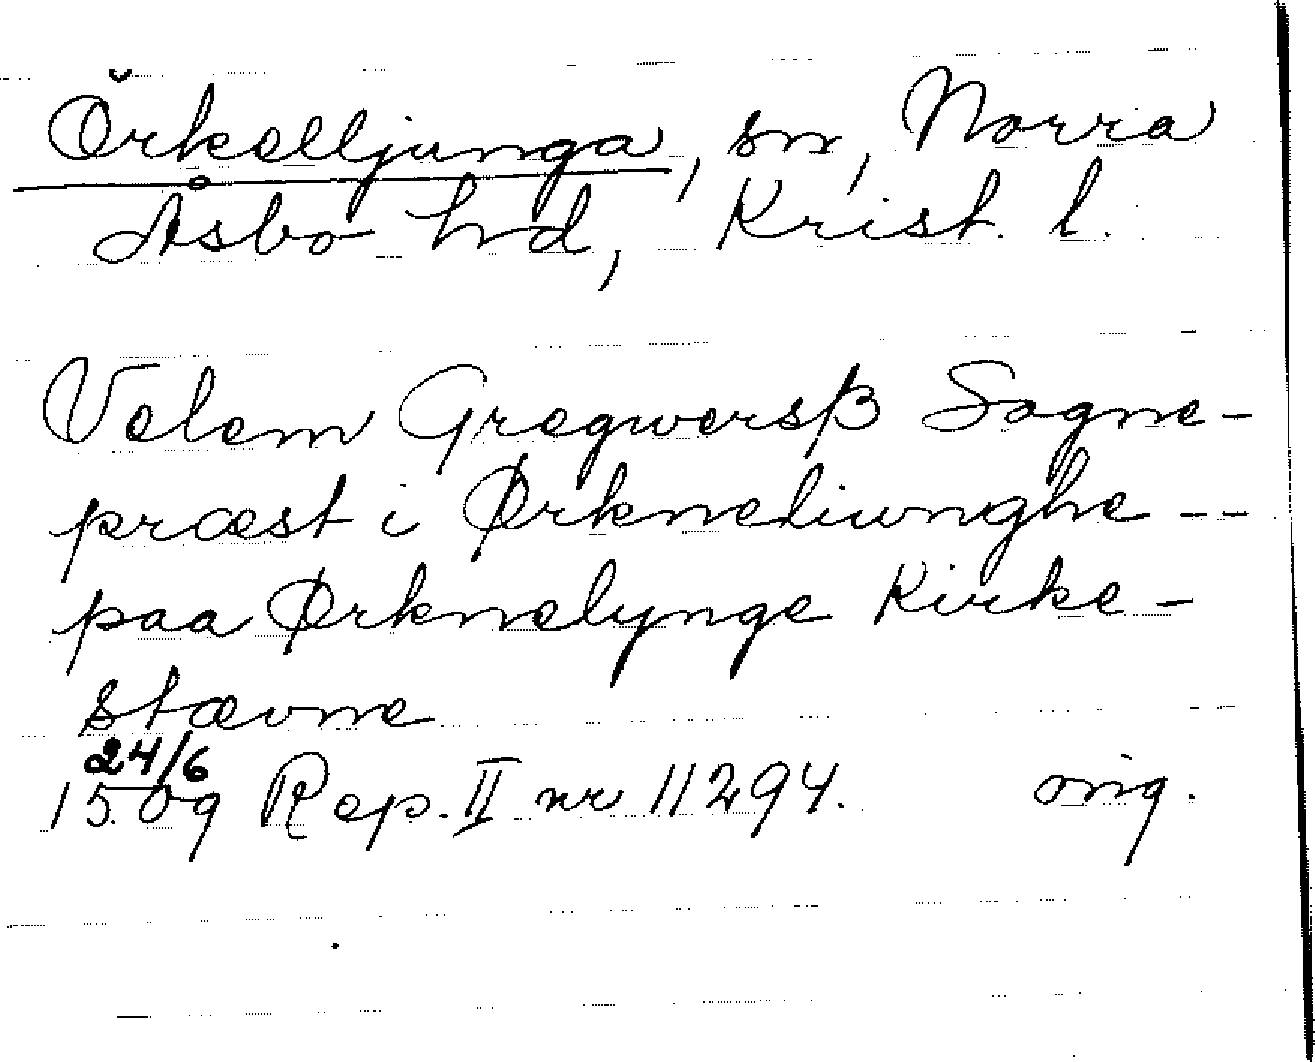 Örkelljunga, sn, Norra
Åsbo hd, Krist. l.
Velem Gregwersß Sogne-
præst i Ørkneliwnghe --
paa Ørknelynge Kirke-
stævne
24/6
1509 Rep. II nr 11294. orig.